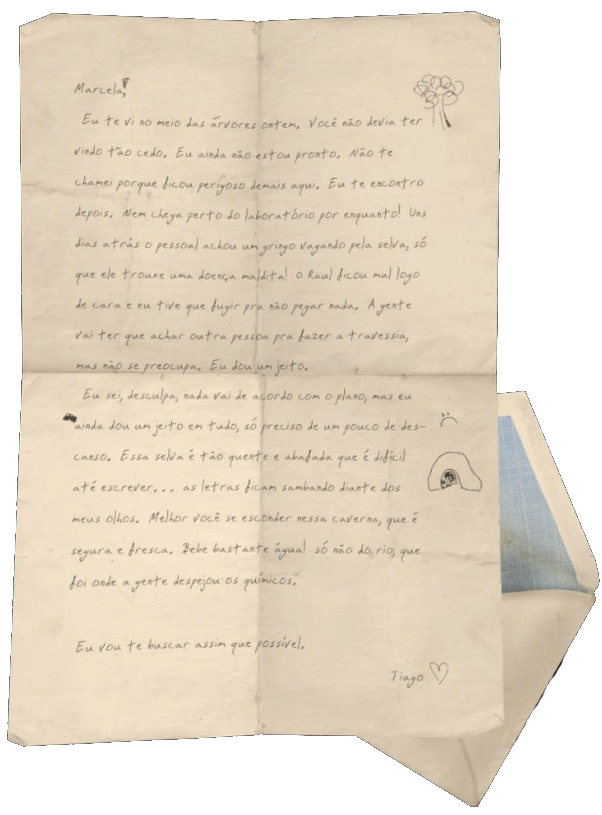 Marcela,
Eu te vi no meio das árvores ontem. Você não devia ter
vindo tão cedo. Eu ainda não estou pronto. Não te
chamei porque ficou perigoso demais aqui. Eu te encontro
depois. Nem chega perto do laboratório por enquanto! Uns
dias atrás o pessoal achou um gringo vagando pela selva, só
que ele trouxe uma doença maldita! O Raul ficou mal logo
de cara e eu tive que fugir pra não pegar nada. A gente
vai ter que achar outra pessoa pra fazer a travessia,
mas não se preocupa. Eu dou um jeito.
Eu sei, desculpa, nada vai de acordo com o plano, mas eu
ainda dou um jeito em tudo, só preciso de um pouco de des-
canso. Essa selva é tão quente e abafada que é difícil
até escrever... as letras ficam sambando diante dos
meus olhos. Melhor você se esconder nessa caverna, que é
segura e fresca. Bebe bastante água! só não do rio, que
foi onde a gente despejou os químicos.
Eu vou te buscar assim que possível.
Tiago